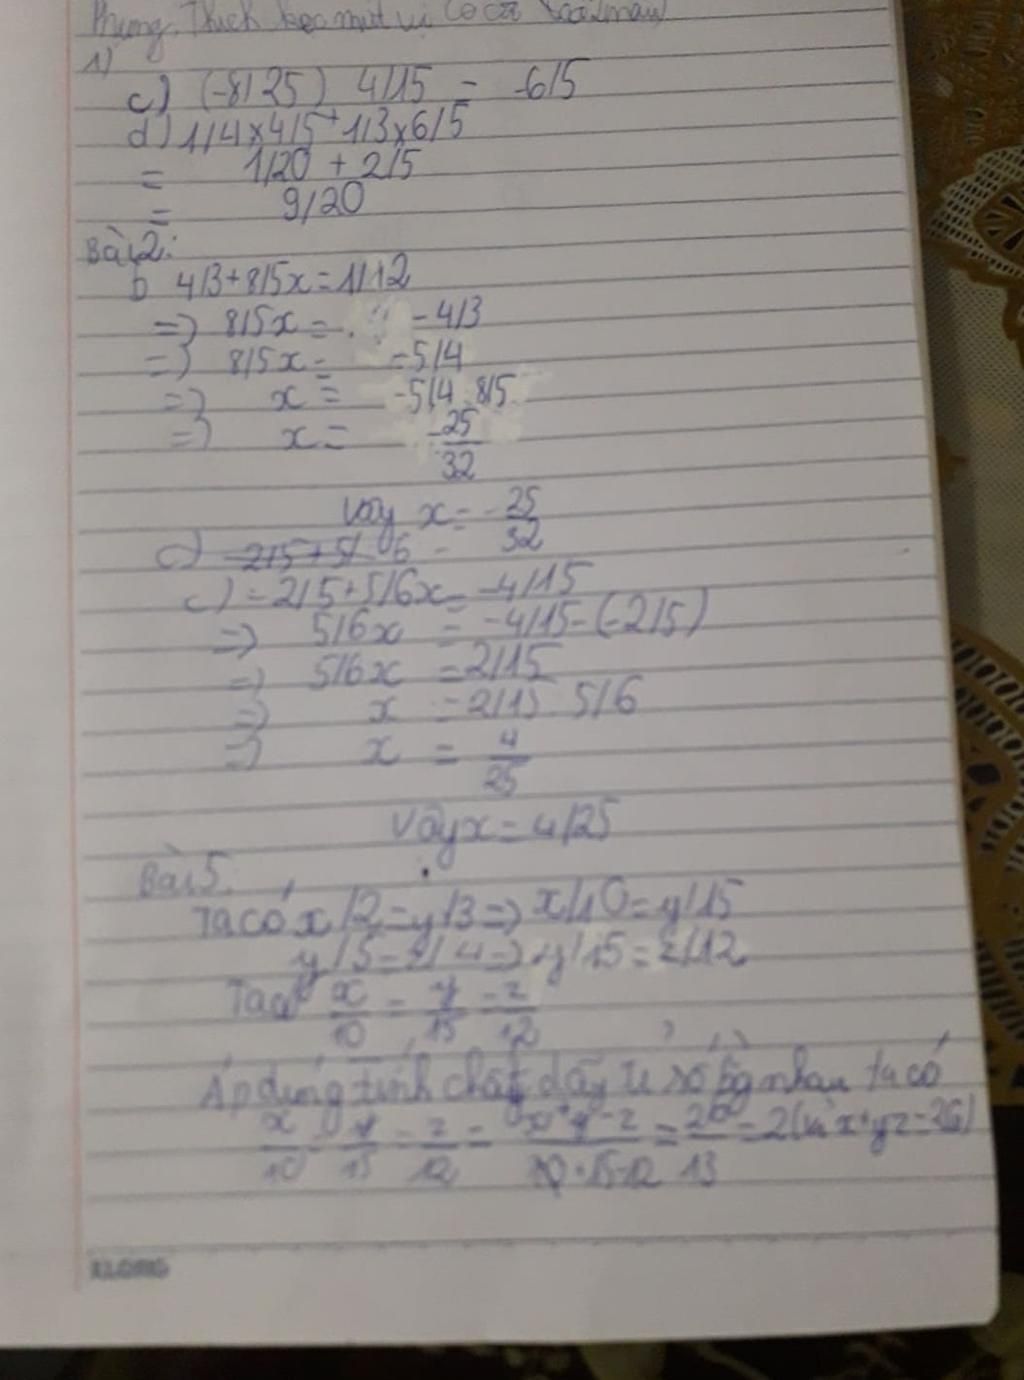 Phương. Thích kẹo mút vị
1)
c) (-8/25) 4/15 = -6/5
d) 1/4x4/5+1/3x6/5
= 1/20 + 2/5
= 9/20
Bài 2:
b 4/3+8/5x=1/12
=) 8/5x= - 4/3
=) 8/5x= -5/4
=) x = -5/4 8/5
=) x = -25/32
Vậy x = -25/32
c) -2/5+5/ 6 -
c) -2/5+5/6x = -4/15
=) 5/6x = -4/15-(-2/5)
=) 5/6x = 2/15
=) x = 2/15 5/6
=) x = 4/25
Vậy x = 4/25
Bài 5.
Ta có x/2=y/3=) x/10=y/15
y/5=z/4=) y/15=z/12
Ta có x/10 = y/15 = z/12
Áp dụng tính chất dãy tỉ số bg nhau ta có
x/10 = y/15 = z/12 = x+y-z/10+15-12 = 26/13 = 2 (vì x+y-z=26)
KLONG